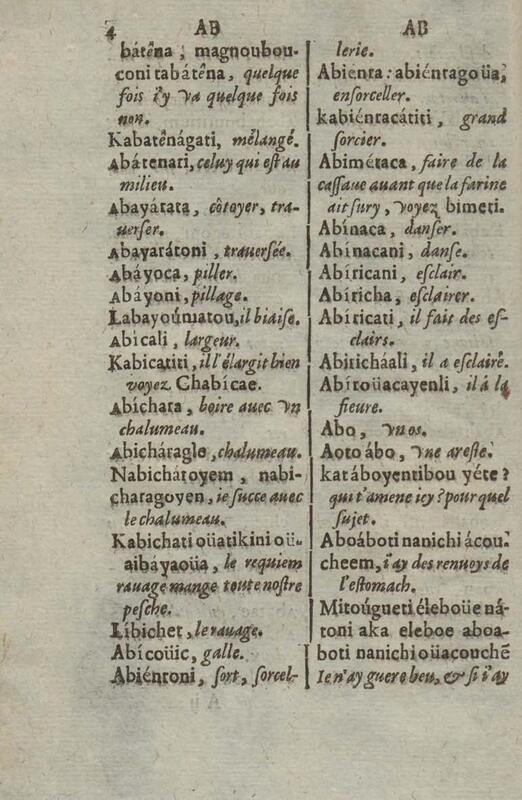 4 AB AB
bátêna ; magnoubou-
coni tabátêna, quelque
fois i'y va quelque fois
non.
Kabatênágati, mêlangé.
Abátenati, celuy qui est au
milieu.
Abayátata, côtoyer, tra-
uerser.
Abayarátoni, trauersée.
Abáyoca, piller.
Abáyoni, pillage.
Labayoúmatou, il biaise.
Abícali, largeur.
Kabicatiti, il l'élargit bien
voyez Chabícae.
Abíchara, boire auec vn
chalumeau.
Abicháragle, chalumeau.
Nabichátoyem, nabi-
charagoyen, ie succe auec
le chalumeau.
Kabichati oüatikini oü-
aibáyaoüa, le requiem
rauage mange toute nostre
pesche.
Líbichet, le rauage.
Abícoüic, galle.
Abiéntoni, sort, sorcel-
lerie.
Abiénra: abiéntagoüa,
ensorceller.
kabiéntacátiti, grand
sorcier.
Abimétaca, faire de la
cassaue auant que la farine
ait sury, voyez bimeti.
Abínaca, danser.
Abínacani, danse.
Abíricani, esclair.
Abíricha, esclairer.
Abíricati, il fait des es-
clairs.
Abiricháali, il a esclairé.
Abíroüacayenli, il á la
fieure.
Abo, vn os.
Aoto ábo, vne areste.
katáboyentibou yéte?
qui t'amene icy? pour quel
sujet.
Aboáboti nanichi ácou-
cheem, i'ay des renuoys de
l'estomach.
Mitoúgueti éleboüe ná-
toni aka eleboe aboa-
boti nanichi oüacouchē
Ie n'ay guere beu, & si i'ay